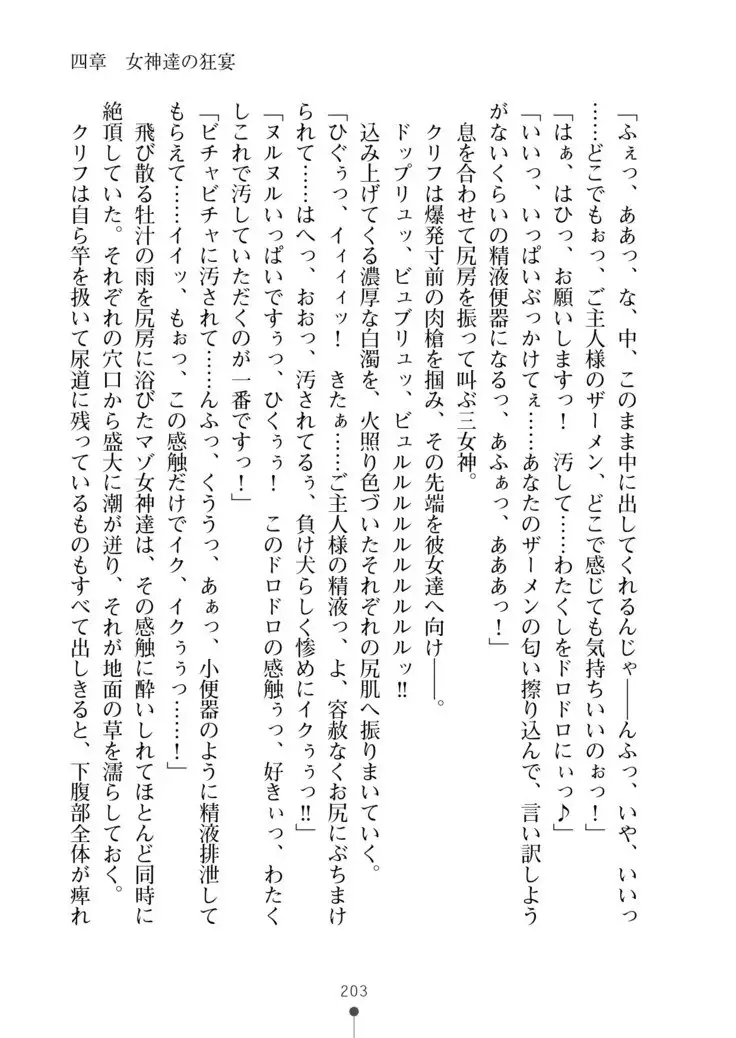 四章　女神達の狂宴
「ふぇっ、ああっ、な、中、このまま中に出してくれるんじゃ――んふっ、いや、いいっ
……どこでもぉっ、ご主人様のザーメン、どこで感じても気持ちいいのぉっ！」
「はぁ、はひっ、お願いしますっ！　汚して……わたくしをドロドロにぃっ♪」
「いいっ、いっぱいぶっかけてぇ……あなたのザーメンの匂い擦り込んで、言い訳しよう
がないくらいの精液便器になるっ、あふぁっ、あああっ！」
息を合わせて尻房を振って叫ぶ三女神。
クリフは爆発寸前の肉槍を掴み、その先端を彼女達へ向け――。
ドップリュッ、ビュブリュッ、ビュルルルルルルルルルルッ‼
込み上げてくる濃厚な白濁を、火照り色づいたそれぞれの尻肌へ振りまいていく。
「ひぐぅっ、イィィィッ！　きたぁ……ご主人様の精液っ、よ、容赦なくお尻にぶちまけ
られて……はへっ、おおっ、汚されてるぅ、負け犬らしく惨めにイクぅぅっ‼」
「ヌルヌルいっぱいですぅっ、ひくぅぅ！　このドロドロの感触ぅっ、好きぃっ、わたく
しこれで汚していただくのが一番ですっ！」
「ビチャビチャに汚されて……んふっ、くううっ、あぁっ、小便器のように精液排泄して
もらえて……イイッ、もぉっ、この感触だけでイク、イクぅぅっ……！」
飛び散る牡汁の雨を尻房に浴びたマゾ女神達は、その感触に酔いしれてほとんど同時に
絶頂していた。それぞれの穴口から盛大に潮が迸り、それが地面の草を濡らしておく。
クリフは自ら竿を扱いて尿道に残っているものもすべて出しきると、下腹部全体が痺れ
203